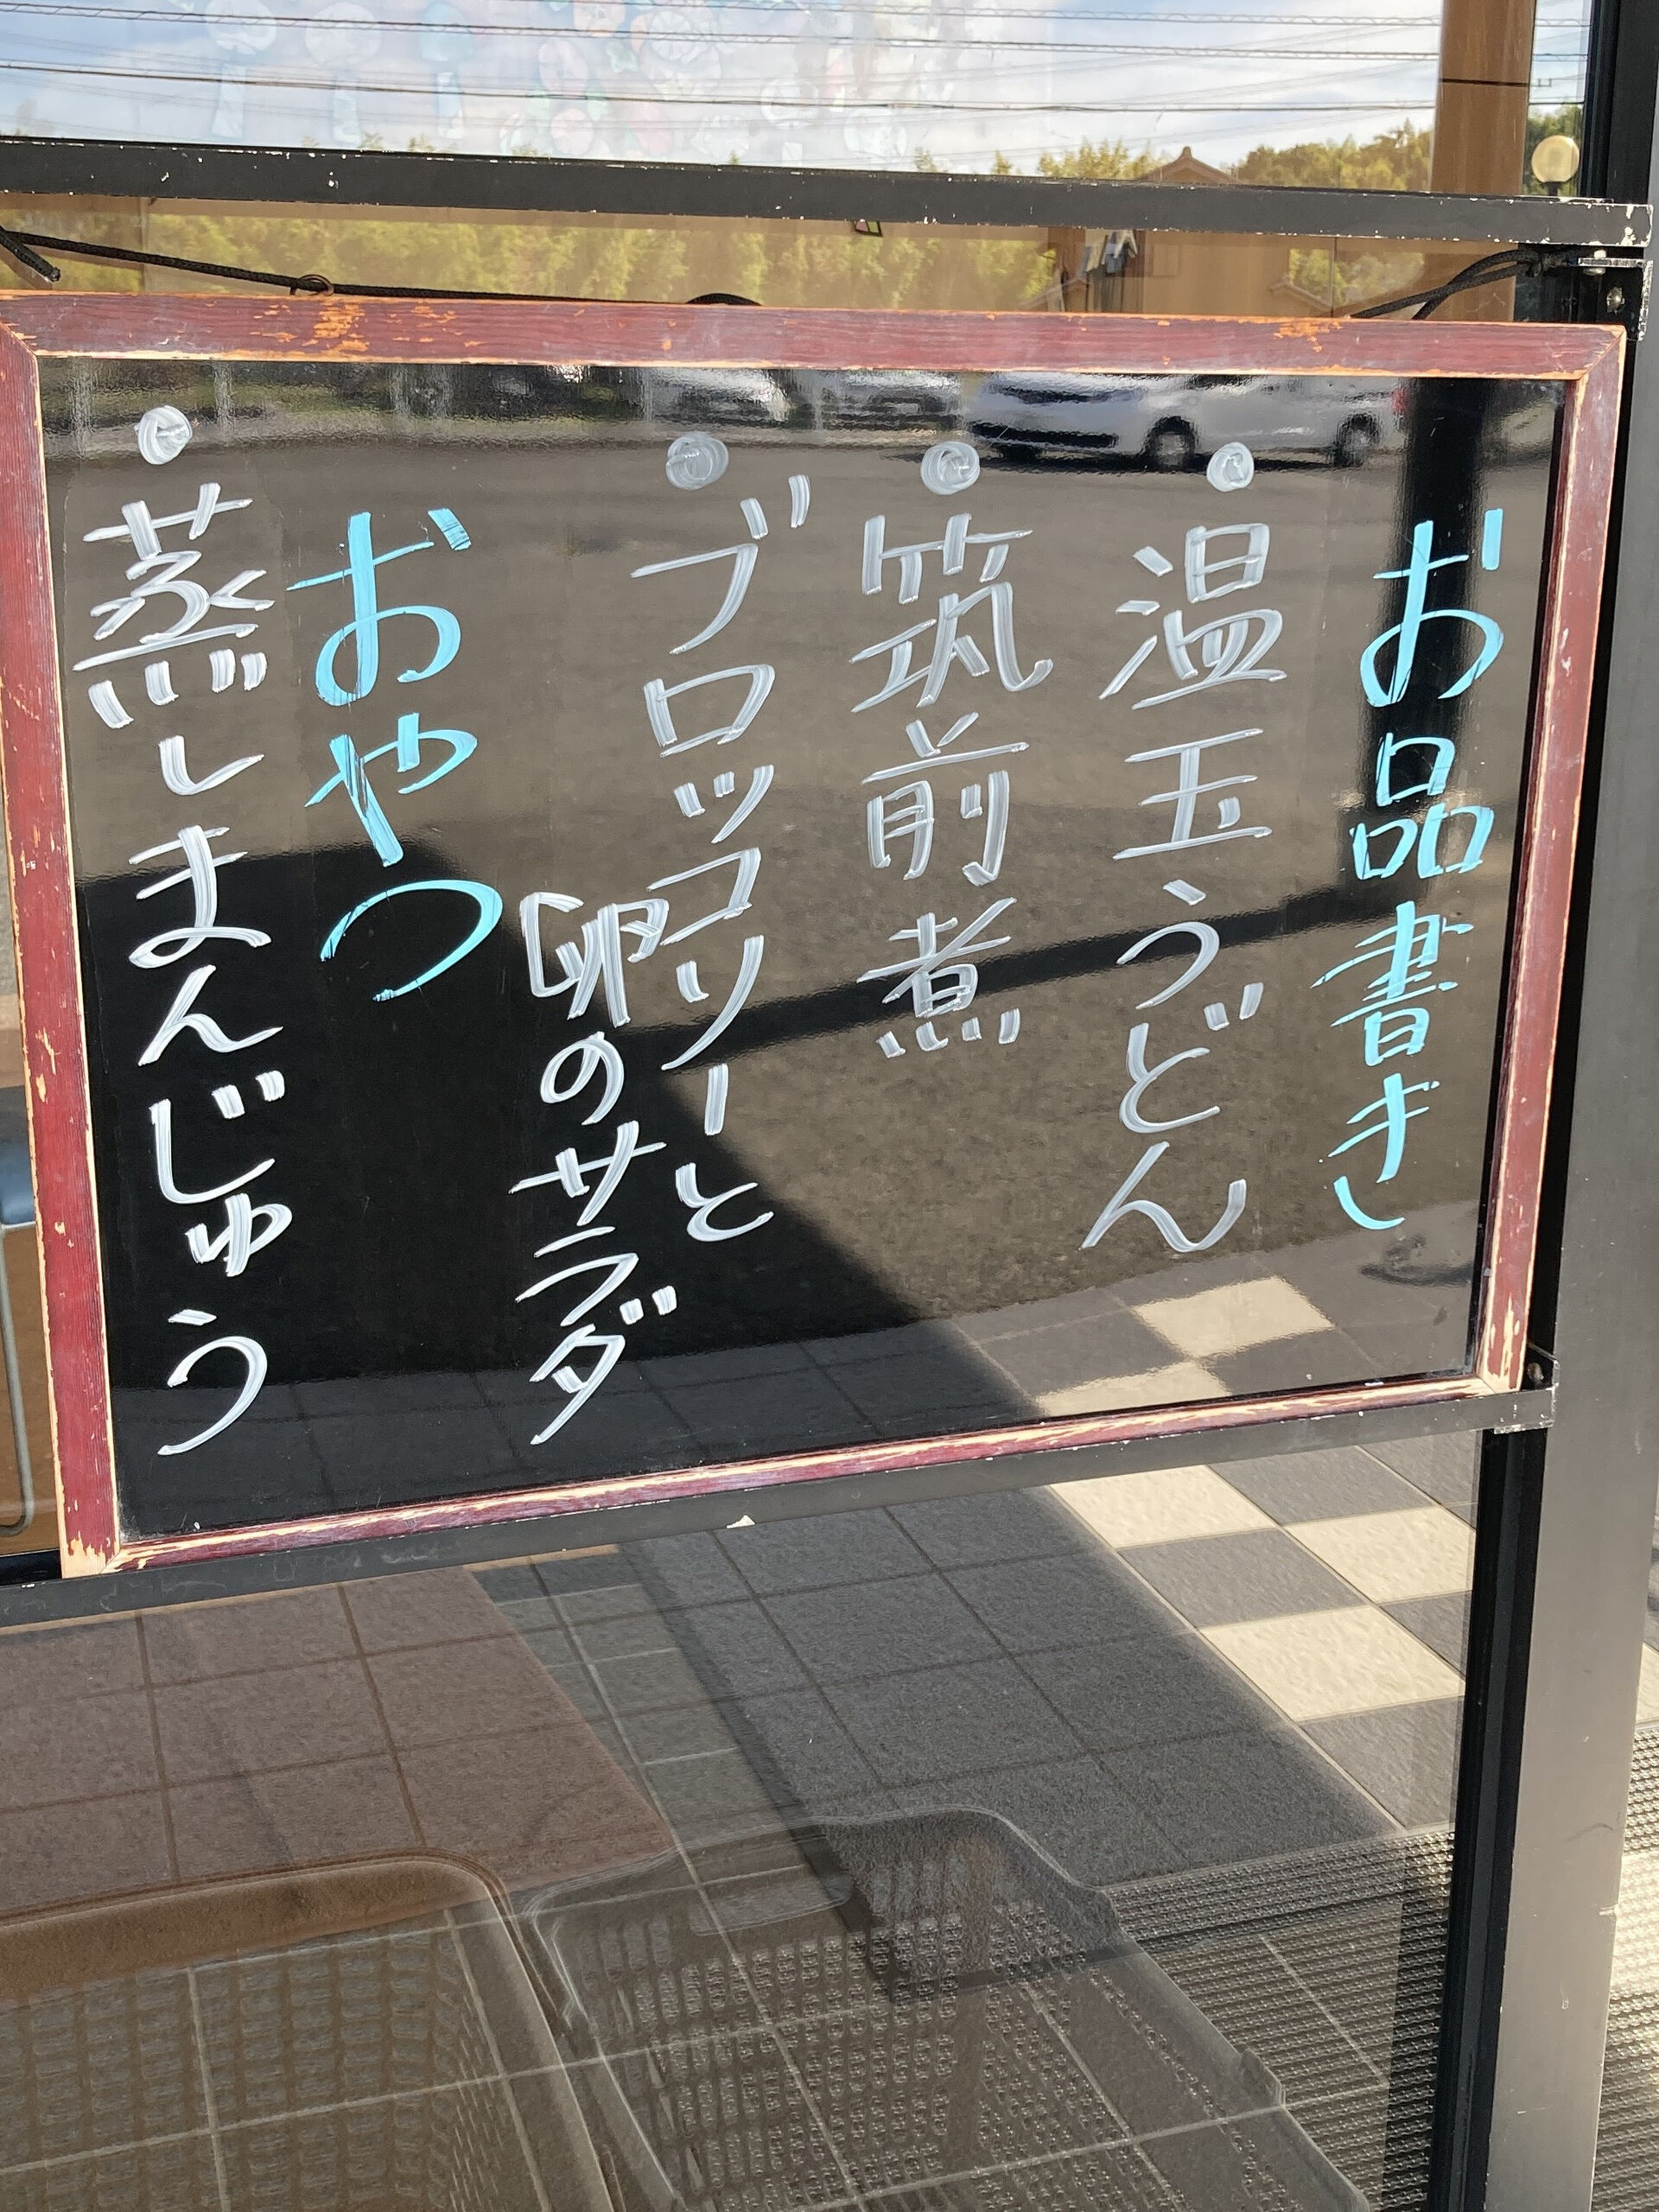 お品書き
・温玉うどん
・筑前煮
・ブロッコリーと
卵のサラダ
おやつ
・蒸しまんじゅう